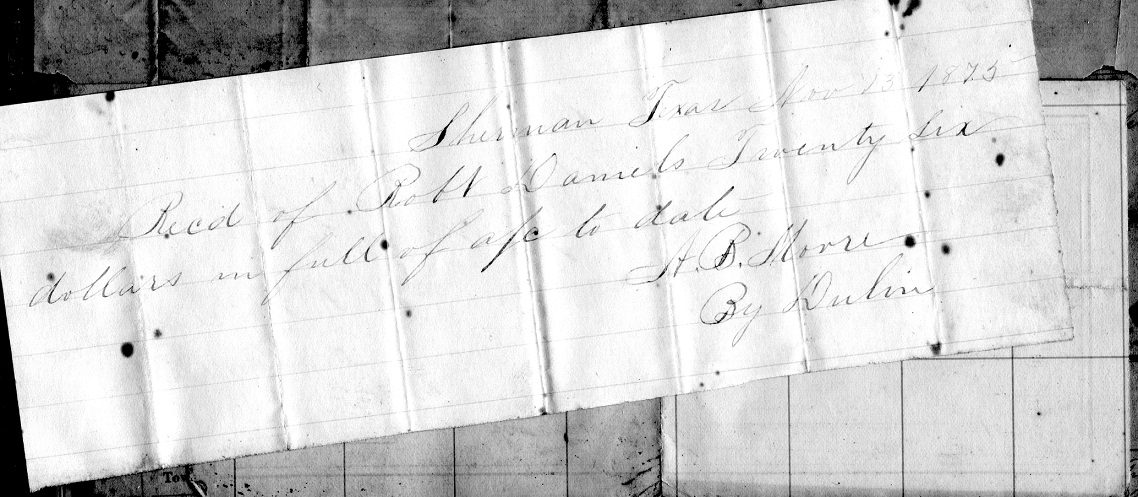 Sherman Texas Nov 13 1875
Recd of Robt Daniels Twenty six
dollars in full of a/c to date
A. B. Moore
By Dulin